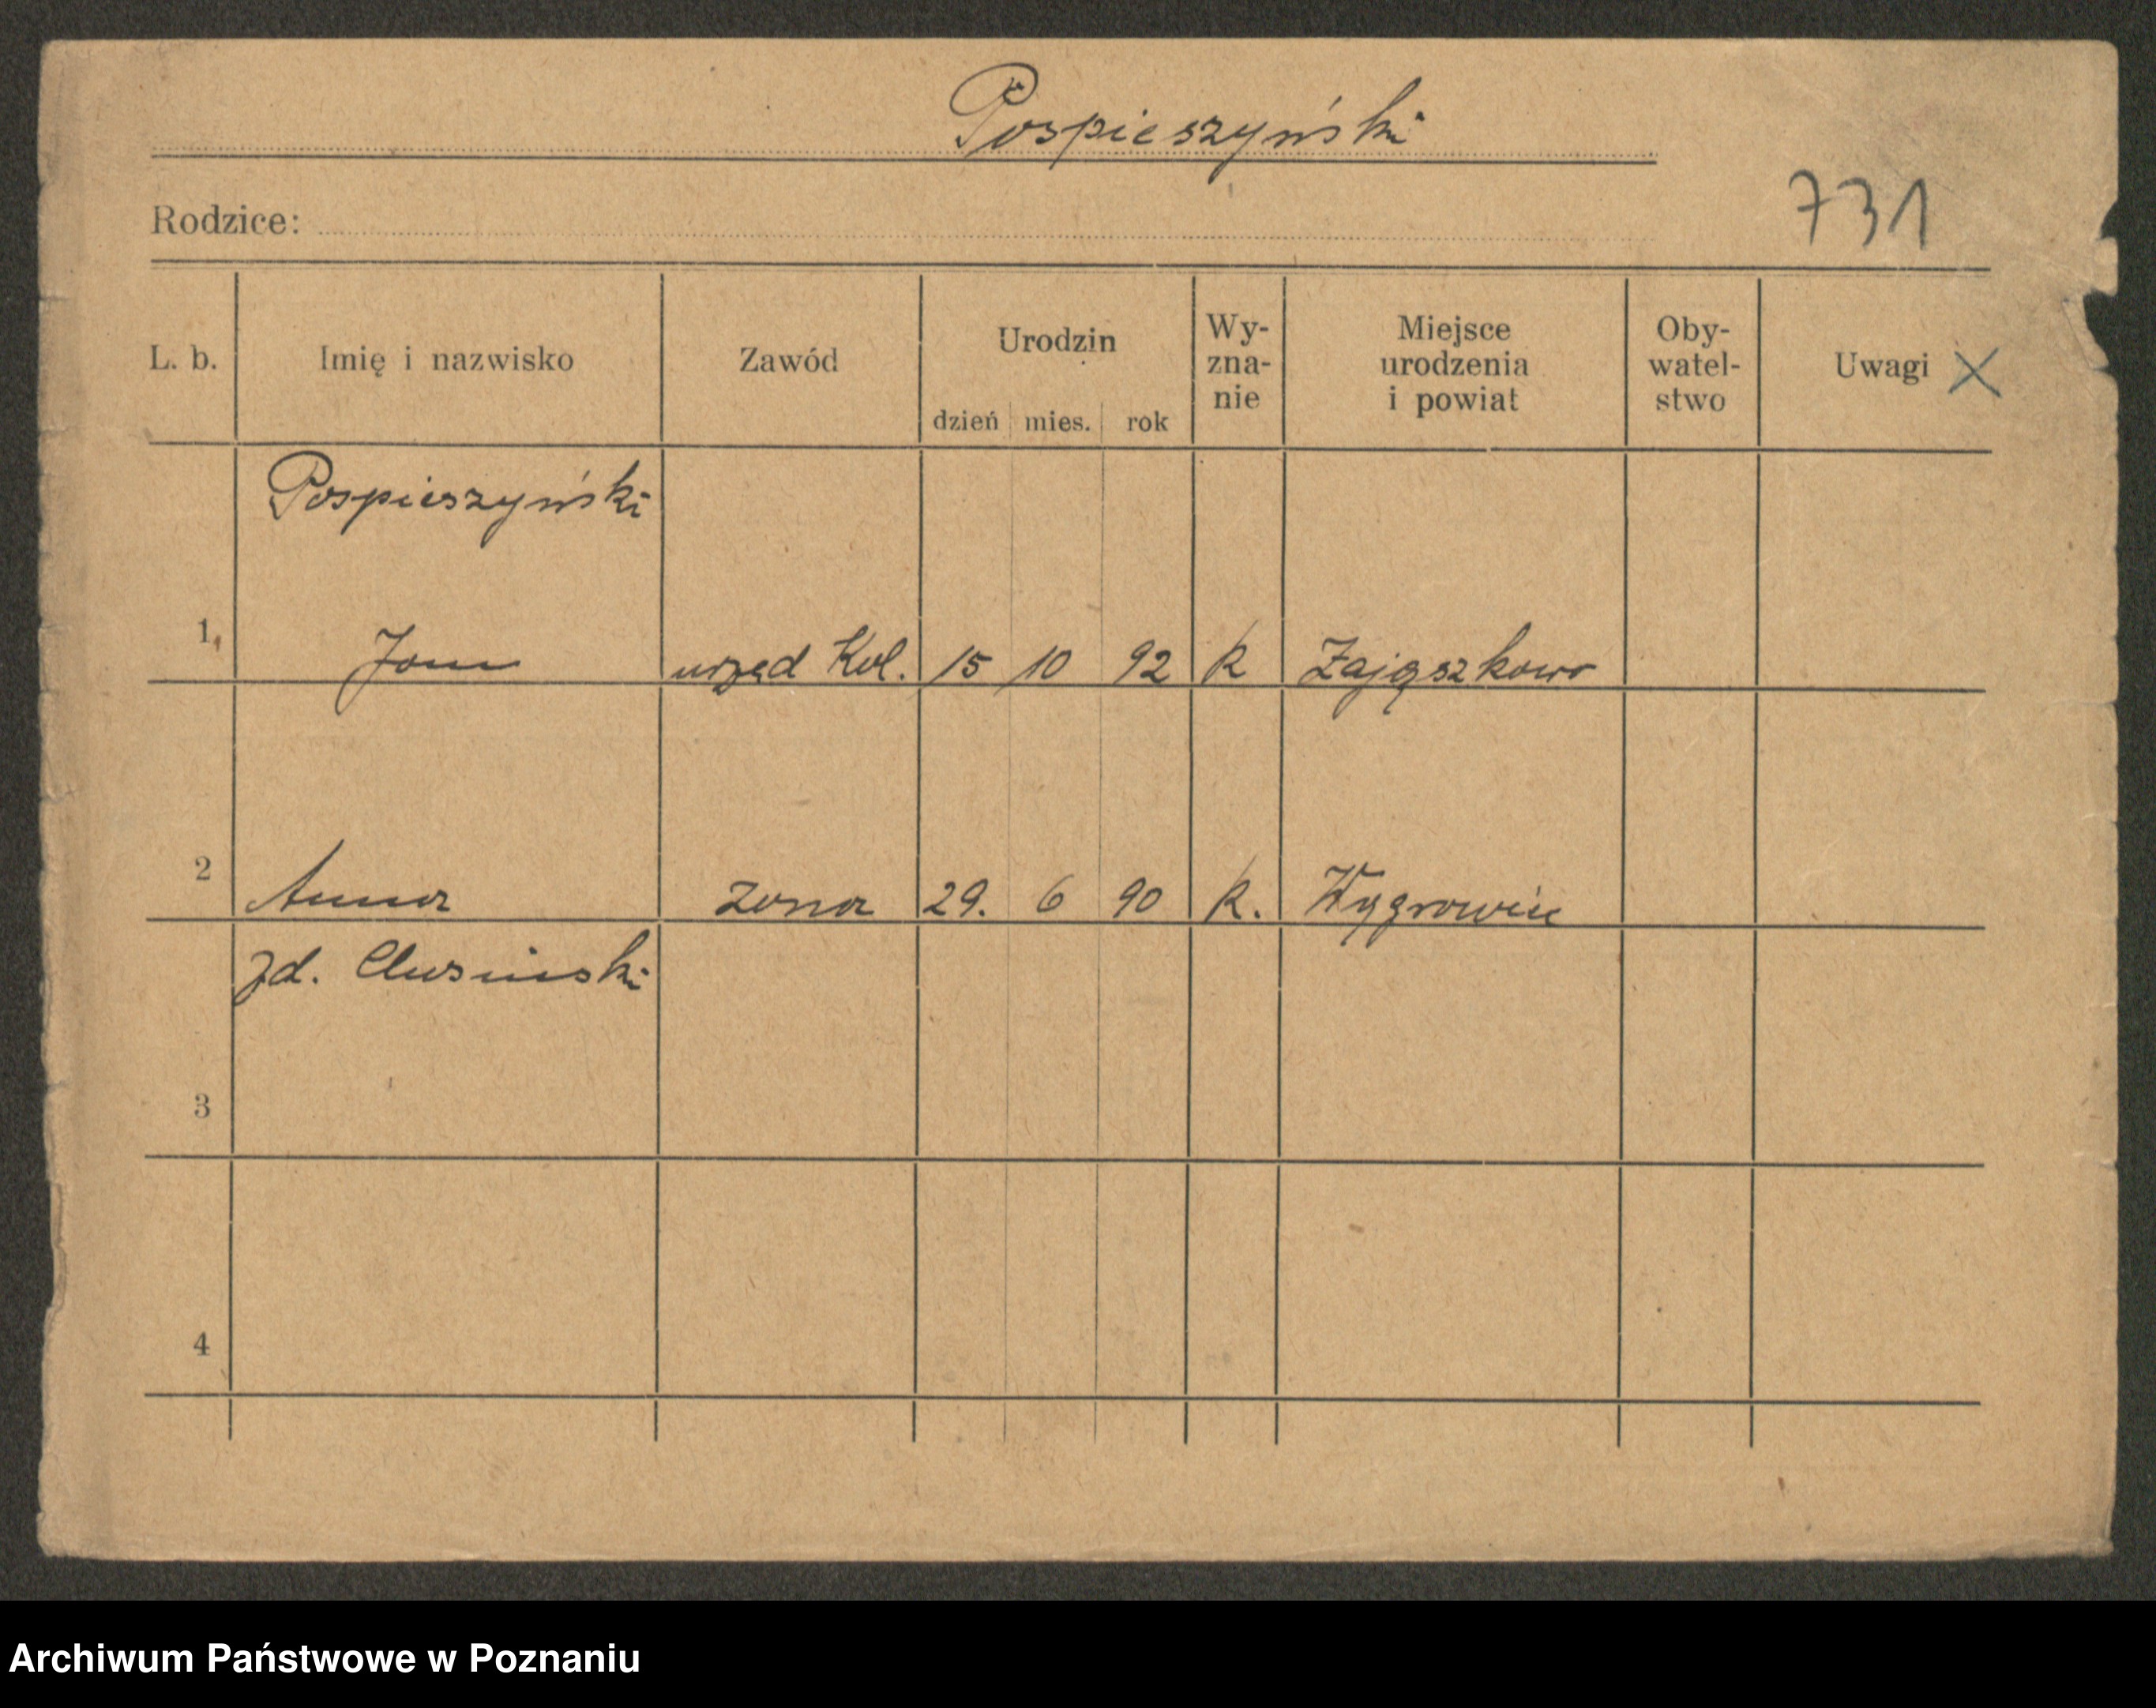 Pospieszyński
Rodzice:
731
L. b. Imię i nazwisko Zawód Urodzin dzień mies. rok Wy-zna-nie Miejsce urodzenia i powiat Oby-watel-stwo Uwagi X
Pospieszyński
1, Jan urzęd Kol. 15 10 92 k Zajączkowo
2 Anna żona 29. 6 90 k. Wągrowiec
zd.
3
4
Archiwum Państwowe w Poznaniu